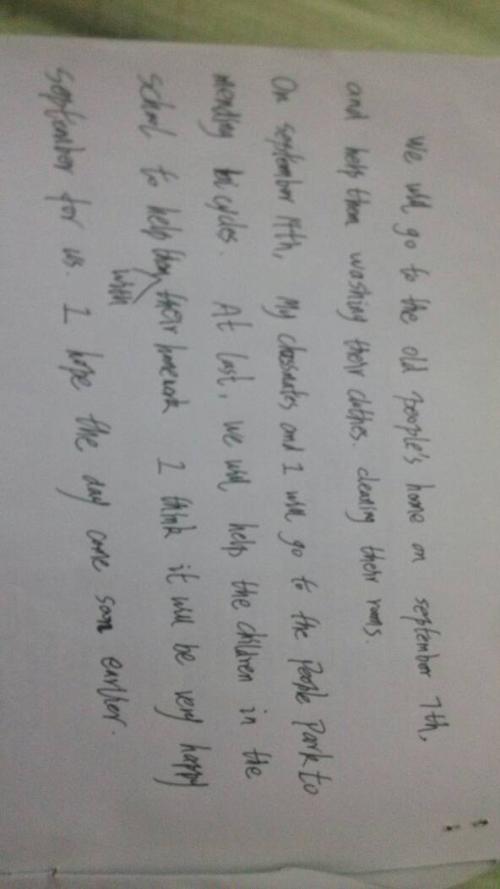 We will go to the old people's home on september 7th,
and help them washing their clothes. cleaning their rooms.
On september 14th, My classmates and I will go to the People Park to
mending bicycles. At last, we will help the children in the
school to help them with their homework I think it will be very happy
september for us. I hope the day come soon earlier.